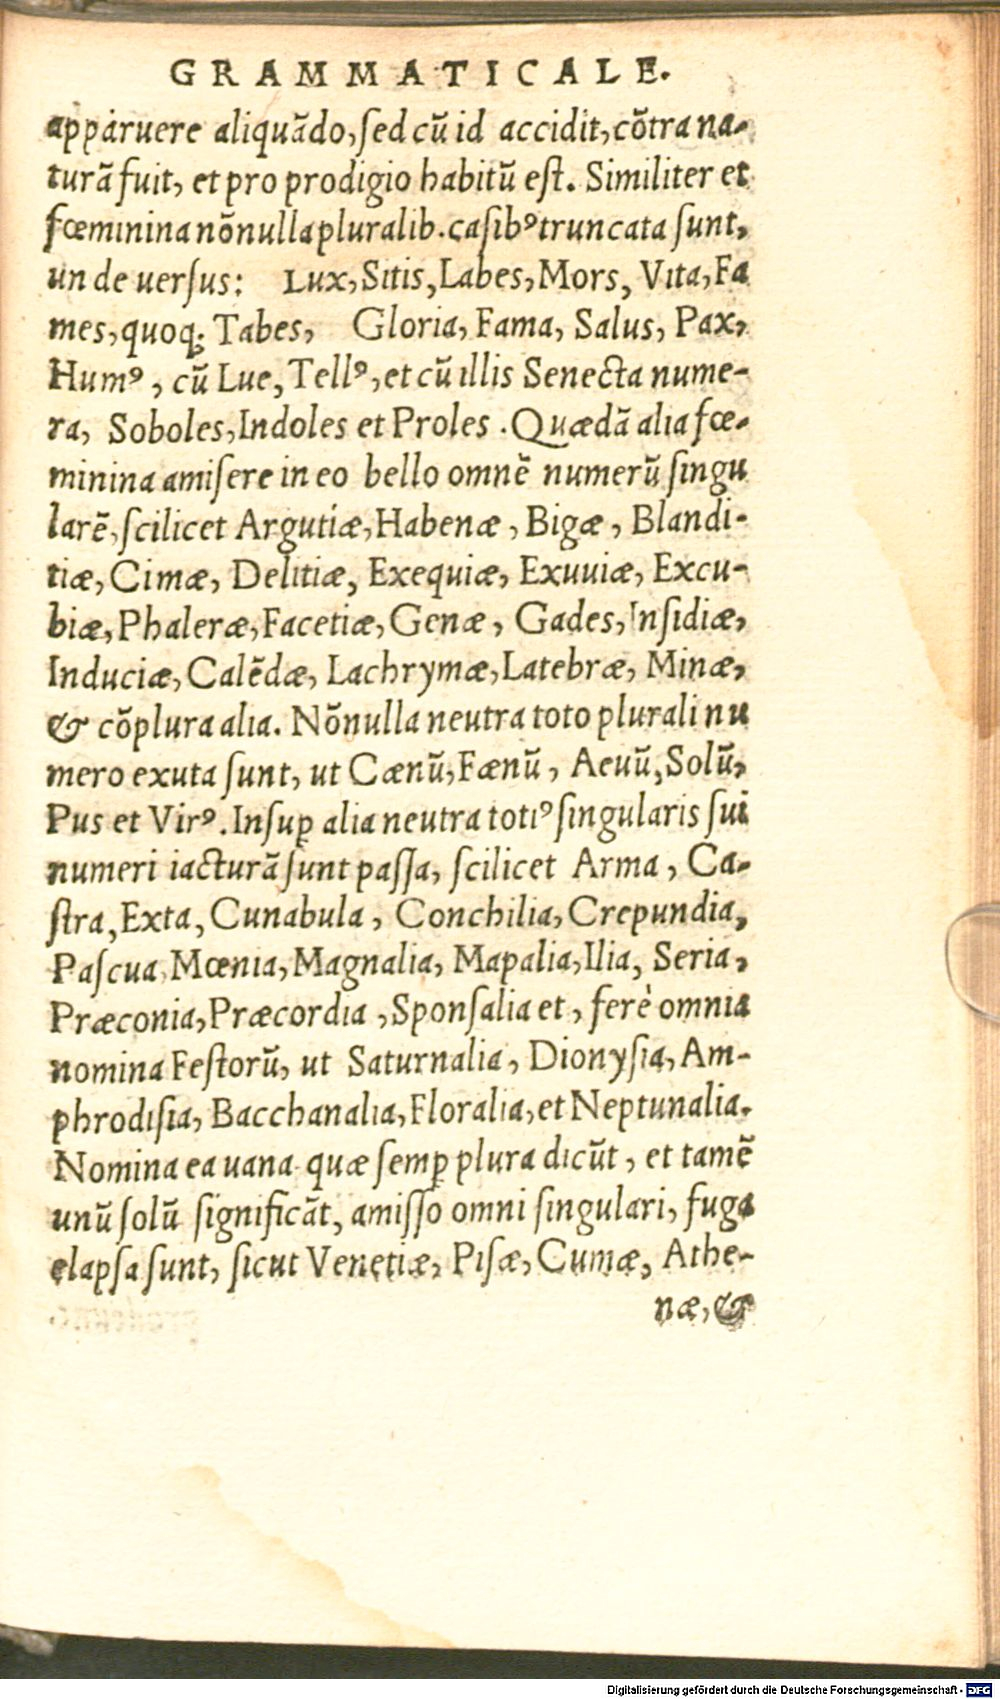 GRAMMATICALE.
apparuere aliquãdo, ſed cũ id accidit, cõtra na-
turã fuit, et pro prodigio habitũ eſt. Similiter et
fœminina nõnulla pluralib. caſibꝰ truncata ſunt,
unde uerſus: Lux, Sitis, Labes, Mors, Vita, Fa
mes, quoq; Tabes, Gloria, Fama, Salus, Pax,
Humꝰ, cũ Lue, Tellꝰ, et cũ illis Senecta nume-
ra, Soboles, Indoles et Proles. Quædã alia fœ-
minina amiſere in eo bello omnẽ numerũ ſingu
larẽ, ſcilicet Argutiæ, Habenæ, Bigæ, Blandi-
tiæ, Cimæ, Delitiæ, Exequiæ, Exuuiæ, Excu-
biæ, Phaleræ, Facetiæ, Genæ, Gades, Inſidiæ,
Induciæ, Calẽdæ, Lachrymæ, Latebræ, Minæ,
& cõplura alia. Nõnulla neutra toto plurali nu
mero exuta ſunt, ut Cænũ, Fænũ, Aeuũ, Solũ,
Pus et Virꝰ. Inſuꝑ alia neutra totiꝰ ſingularis ſui
numeri iacturã ſunt paſſa, ſcilicet Arma, Ca-
ſtra, Exta, Cunabula, Conchilia, Crepundia,
Paſcua, Mœnia, Magnalia, Mapalia, Ilia, Seria,
Præconia, Præcordia, Sponſalia et, ferè omnia
nomina Feſtorũ, ut Saturnalia, Dionyſia, Am-
phrodiſia, Bacchanalia, Floralia, et Neptunalia.
Nomina ea uana quæ ſemꝑ plura dicũt, et tamẽ
unũ ſolũ ſignificãt, amiſſo omni ſingulari, fuga
elapſa ſunt, ſicut Venetiæ, Piſæ, Cumæ, Athe-
næ, &
Digitalisierung gefördert durch die Deutsche Forschungsgemeinschaft - DFG